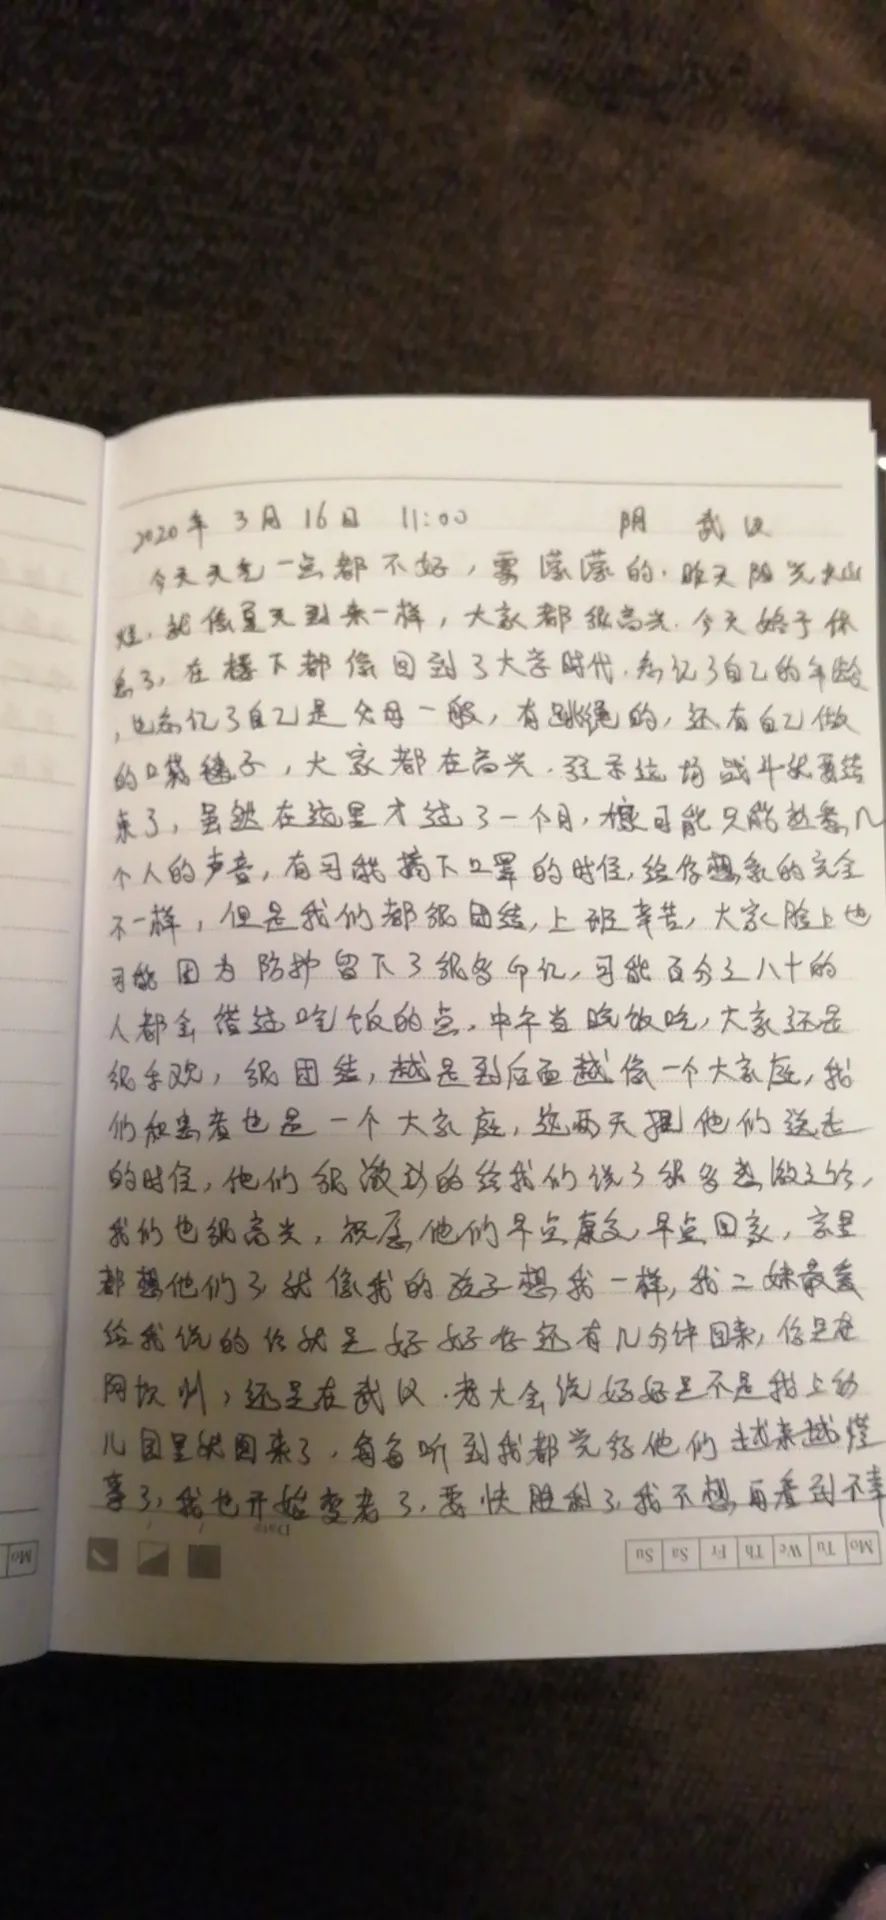 2020年 3月 16日 11:00 阴 武汉
今天天气一点都不好，雾濛濛的.昨天阳光火山
烂.就像夏天到来一样，大家都很高兴.今天终于休
息了，在楼下都像回到了大学时代.忘记了自己的年龄
，也忘记了自己是父母一般，有跳绳的，还有自己做
的口袋毽子，大家都在高兴.预示这场战斗快要结
束了，虽然在这里才过了一个月，可能只能熟悉几
个人的声音，有可能摘下口罩的时侯，给你想象的完全
不一样，但是我们都很团结，上班辛苦，大家脸上也
可能因为防护留下了很多印记，可能百分之八十的
人都会错过吃饭的点.中午当晚饭吃，大家还是
很乐观，很团结，越是到后面越像一个大家庭，我
们和患者也是一个大家庭，这两天把他们送走
的时侯，他们很激动的给我们说了很多感激之话，
我们也很高兴，祝愿他们早点康复，早点回家，家里
都想他们了，就像我的孩子想我一样，我二妹最爱
给我说的话就是好好存还有几分钟回来，你是在
阿坝州，还是在武汉.老大会说好好是不是我上幼
儿园里就回来了，每每听到我都觉得他们越来越懂
事了，我也开始变老了.要快胜利了，我不想再看到不幸
Date
Mo Tu We Th Fr Sa Su
Mo